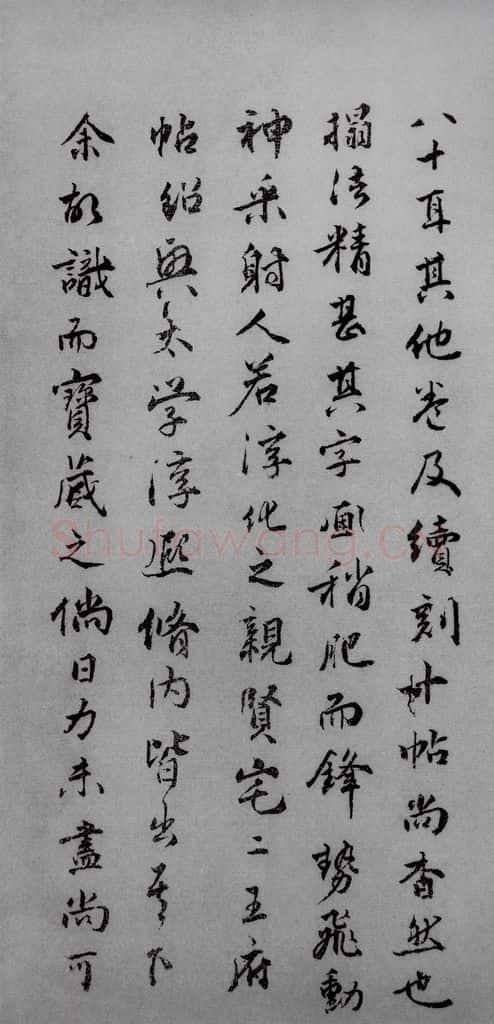 八十耳其他卷及續刻廿帖尚杳然也
搨法精甚其字画稍肥而鋒勢飛動
神采射人若淳化之親賢宅二王府
帖紹興太学淳熙脩內皆出其下
余故識而寶藏之倘日力未盡尚可
Shufawang.cn